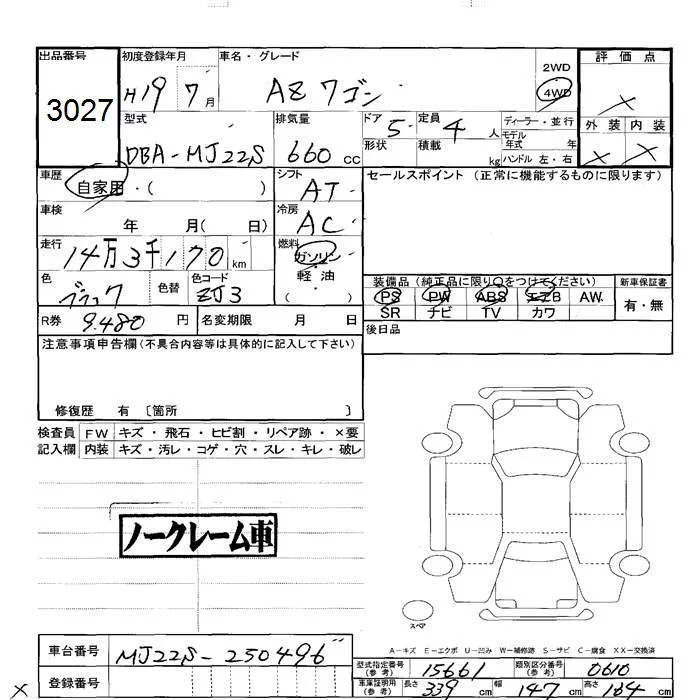 出品番号 初度登録年月 車名・グレード 2WD 評価点
3027 H19 7月 AZワゴン 4WD ×
型式 排気量 ドア 5 定員 4人 ディーラー・並行 外装 内装
DBA-MJ22S 660cc 形状 積載 kg モデル年式 年 × ×
ハンドル 左・右
車歴 自家用・( ) シフト AT セールスポイント (正常に機能するものに限ります)
車検 年 月( 日) 冷房 AC
走行 14万3千170km 燃料 ガソリン
軽油
( )
色 ブラック 色替 色コード ZJ3
装備品 (純正品に限り○をつけてください) 新車保証書
PS PW ABS エアB AW 有・無
SR ナビ TV カワ
R券 9.480円 名変期限 月 日 後日品
注意事項申告欄(不具合内容等は具体的に記入して下さい)
修復歴 有 〔箇所 〕
検査員 FW キズ・飛石・ヒビ割・リペア跡・×要
記入欄 内装 キズ・汚レ・コゲ・穴・スレ・キレ・破レ
ノークレーム車
スペア
A-キズ E-エクボ U-凹み W-補修跡 S-サビ C-腐食 XX-交換済
車台番号 MJ22S-250496
登録番号
型式指定番号(参考) 15661 類別区分番号(参考) 0610
車庫証明用(参考) 長さ 339cm 幅 147cm 高さ 164cm
×